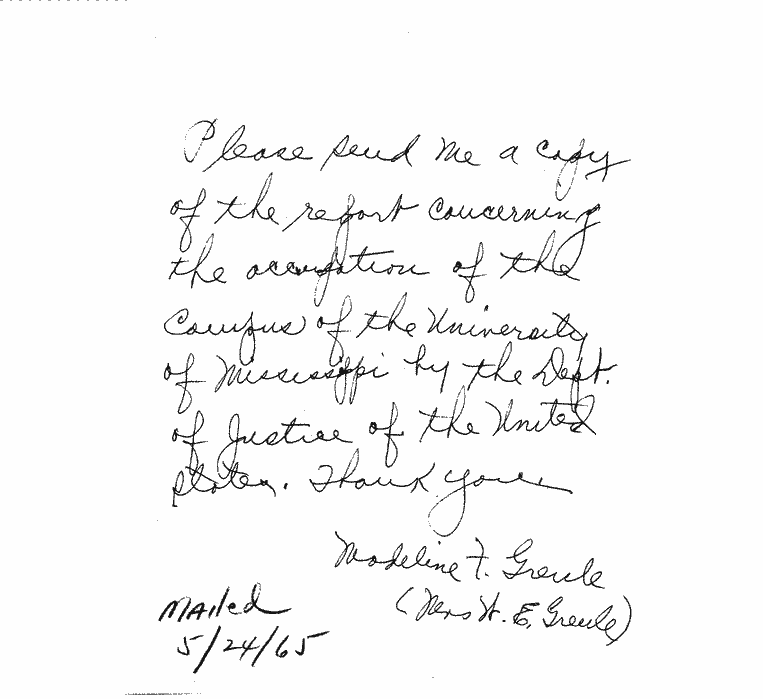 Please send me a copy
of the report concerning
the occupation of the
Campus of the University
of Mississippi by the Dept.
of Justice of the United
States. Thank you
Madeline F. Greule
(Mrs W. E. Greule)
Mailed
5/24/65